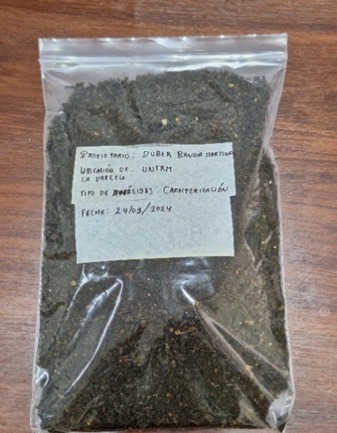 PROPIETARIO: DUBER BANDA MARTINEZ
UBICACIÓN DE UNTRM
LA PARCELA
TIPO DE ANÁLISIS: CARACTERIZACIÓN
FECHA: 24/03/2024